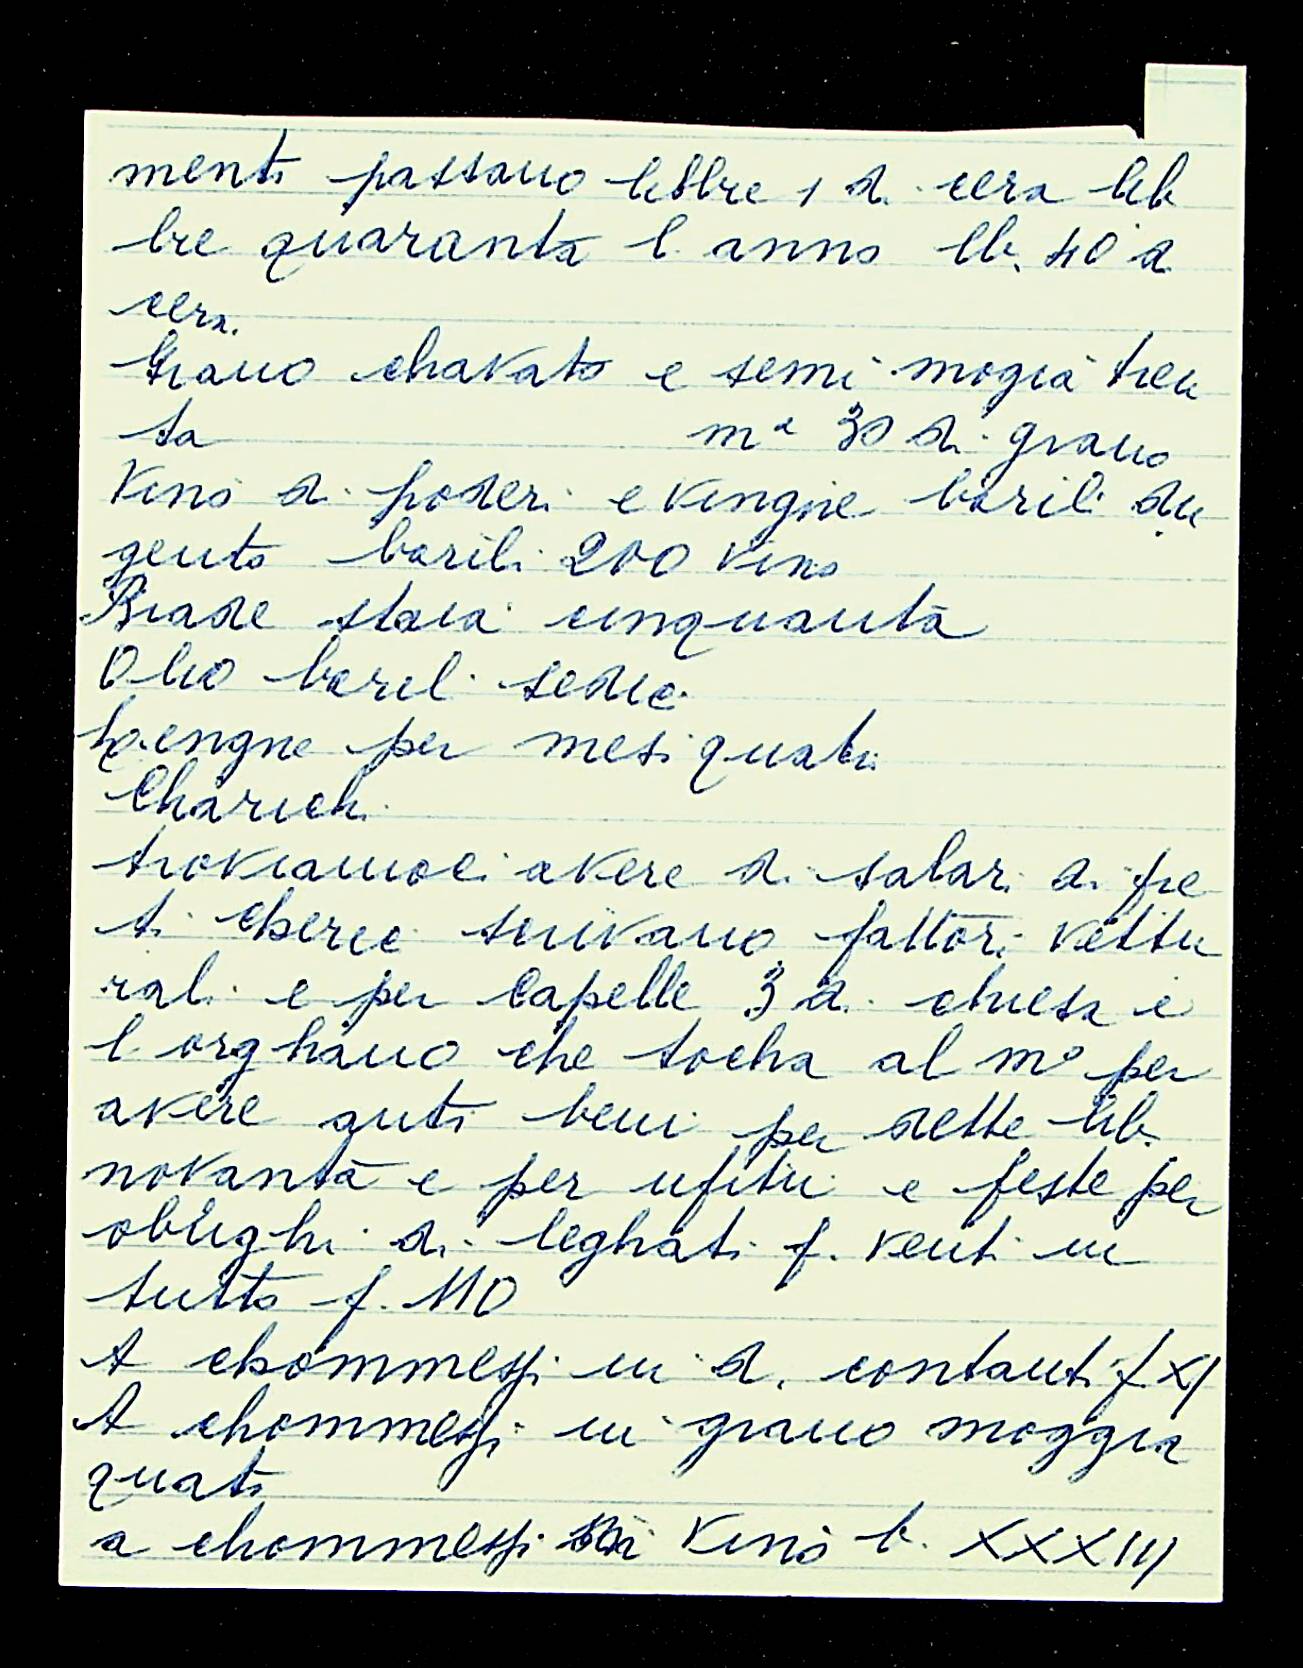 menti passano libbre 1 di cera lib
bre quaranta l anno lb. 40 di
cera.
Grano chavato e semi mogia tren
ta mª 30 di grano
Vino di poderi e vingne barili du
gento barili 200 vino
Biade staia cinquanta
Olio baril. sedic.
Lengne per mesi quatr.
Charichi.
troviamoci avere di salari di pre
ti cherici servivano fattori vettu
rali e per Capelle 3 di chiesa e
l orghano che tocha al mº per
avere auti beni per dette lib.
novanta e per ufitii e feste per
oblighi di leghati f. venti in
tutto f. 110
A chommessi in d. contanti f. XI
A chommessi in grano moggia
quatt.
a chommessi vino b. XXXIII